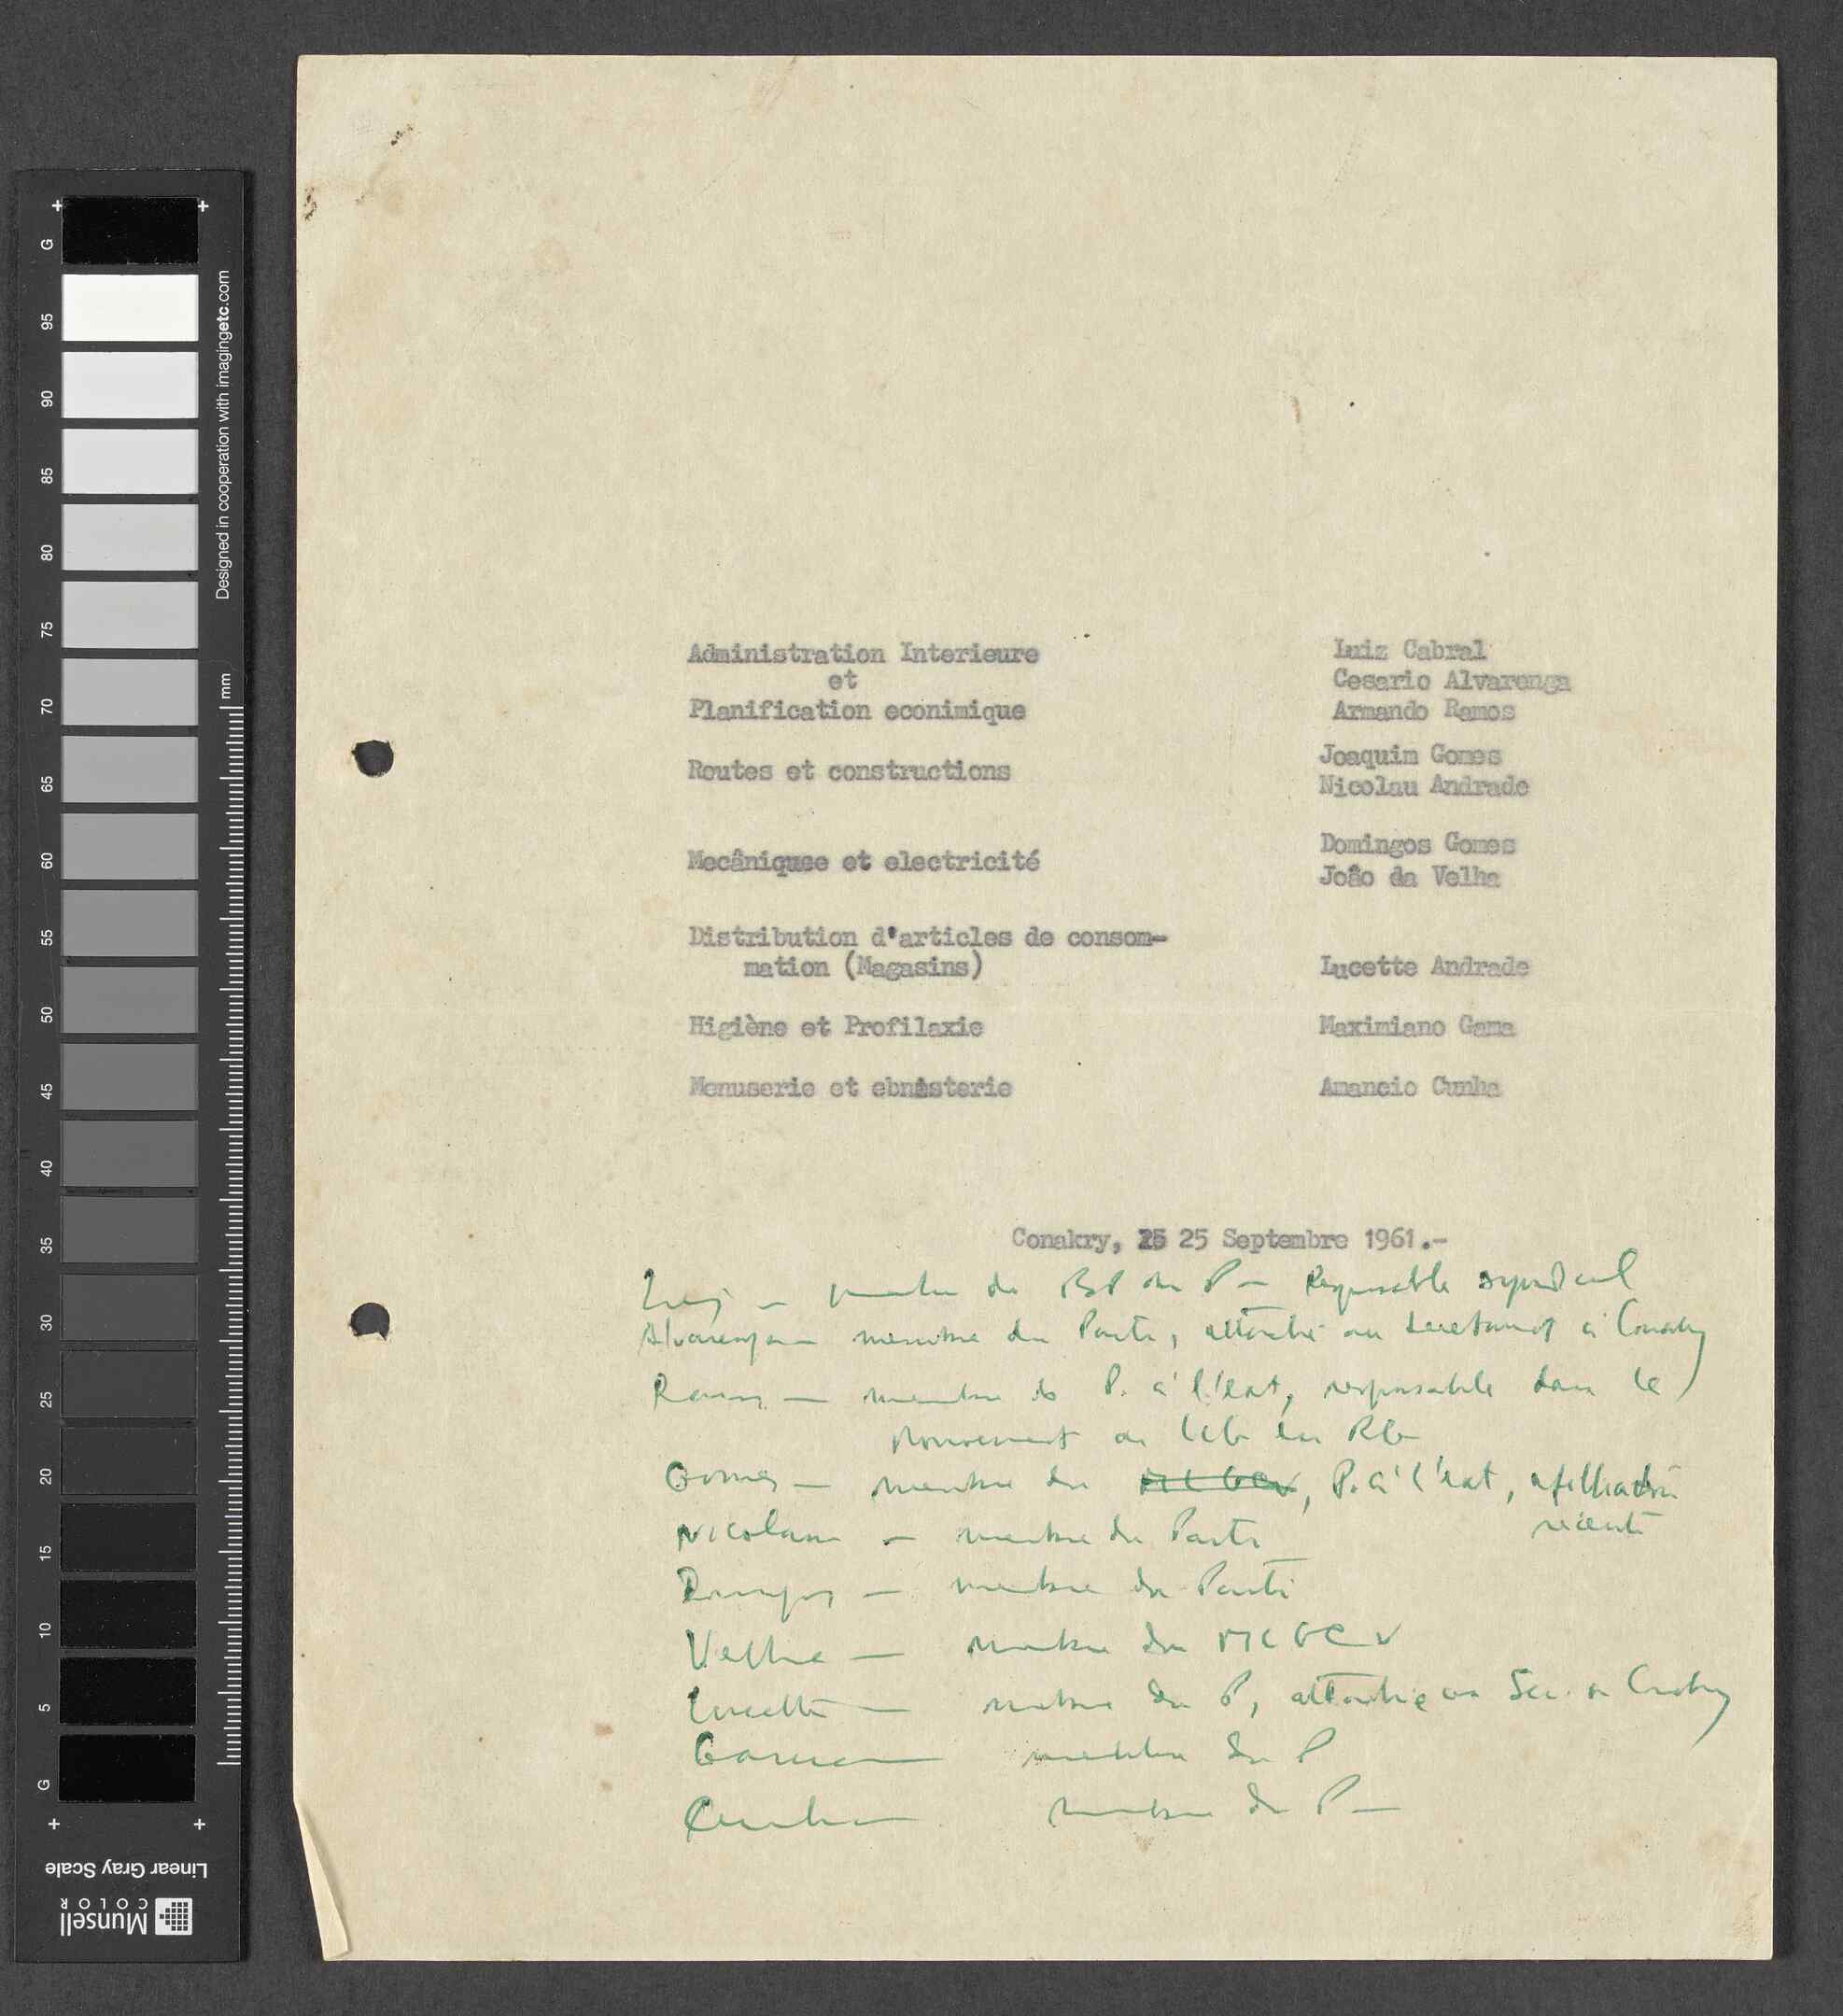 Administration Interieure Luiz Cabral
et Cesario Alvarenga
Planification econimique Armando Ramos
Routes et constructions Joaquim Gomes
Nicolau Andrade
Mecâniquee et electricité Domingos Gomes
João da Velha
Distribution d'articles de consom-
mation (Magasins) Lucette Andrade
Higiène et Profilaxie Maximiano Gama
Menuserie et ebnisterie Amancio Cunha
Conakry, 25 25 Septembre 1961.-
Luiz - membre du BP du P - Responsable syndical
Alvarenga - membre du Parti, attaché au à Conakry
Ramos - membre du P. à l'ext, responsable dans le
Mouvement de
Gomes - membre du MLGCV, P. à l'ext, afiliation
récente
Nicolau - membre du Parti
Domingos - membre du Parti
Velha - membre du MLGCV
Lucette - membre du P, attachée au Sec. à Conakry
Gama - membre du P
Cunha membre du P -
G 95 90 85 80 75 70 65 60 55 50 45 40 35 30 25 20 15 10 5 G
Designed in cooperation with imagingetc.com
mm
Linear Gray Scale
Munsell
COLOR